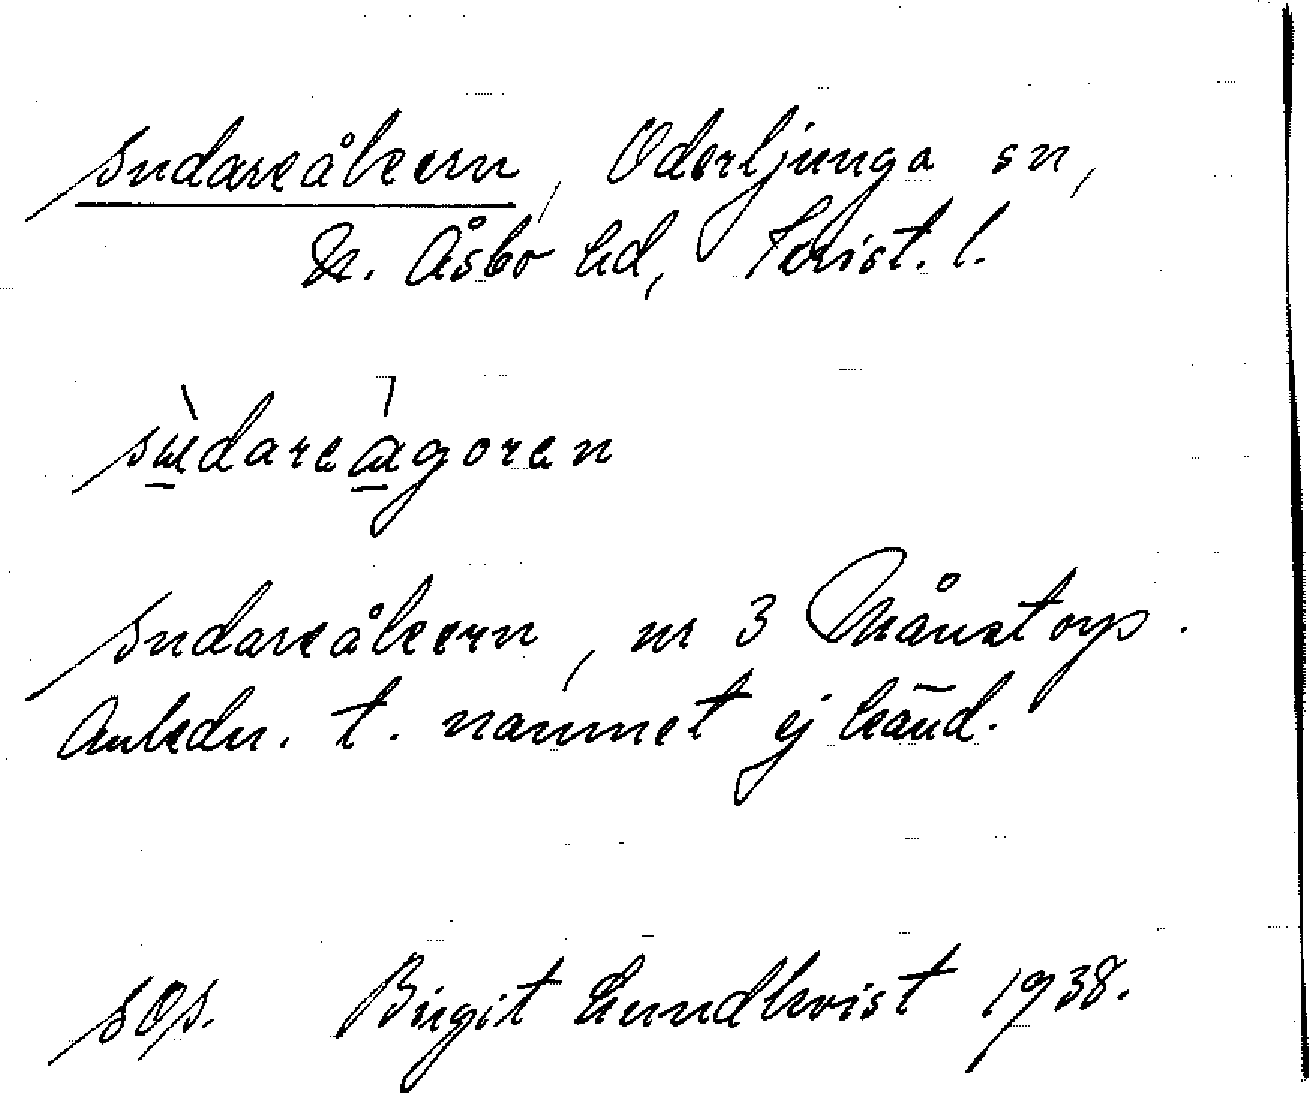 Sudareåkern, Oderljunga sn,
N. Åsbo hd, Krist. l.
sudareagoren
Sudareåkern, nr 3 Månstorp.
Anledn. t. namnet ej känd.
SOs. Birgit Lundkvist 1938.